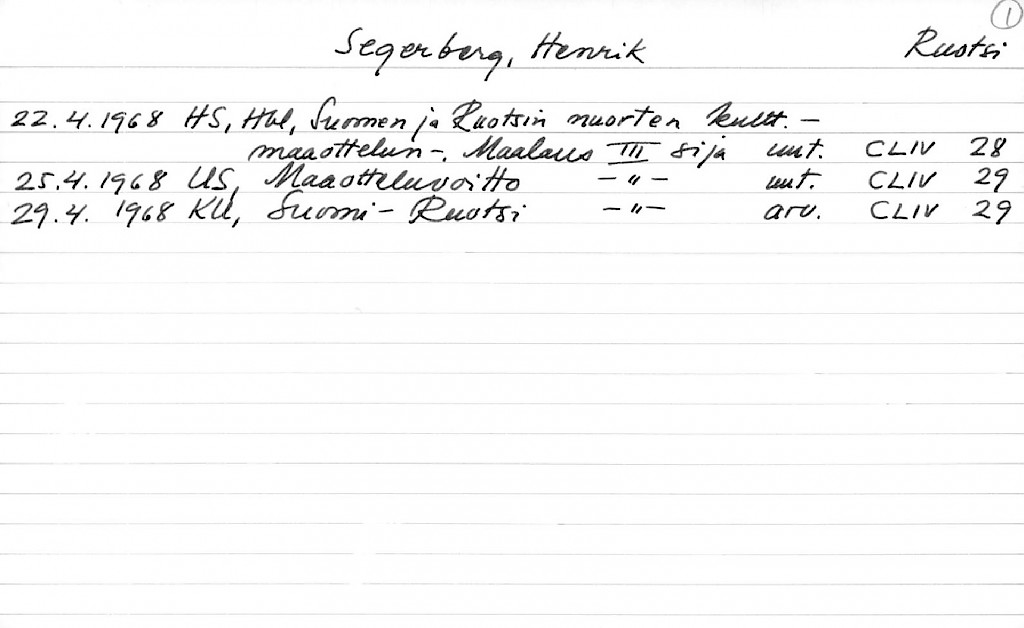 1
Segerberg, Henrik Ruotsi
22.4.1968 HS, Hbl, Suomen ja Ruotsin nuorten kultt. -
maaottelun-. Maalaus III sija uut. CLIV 28
25.4.1968 US, Maaotteluvoitto -"- uut. CLIV 29
29.4. 1968 KU, Suomi - Ruotsi -"- arv. CLIV 29